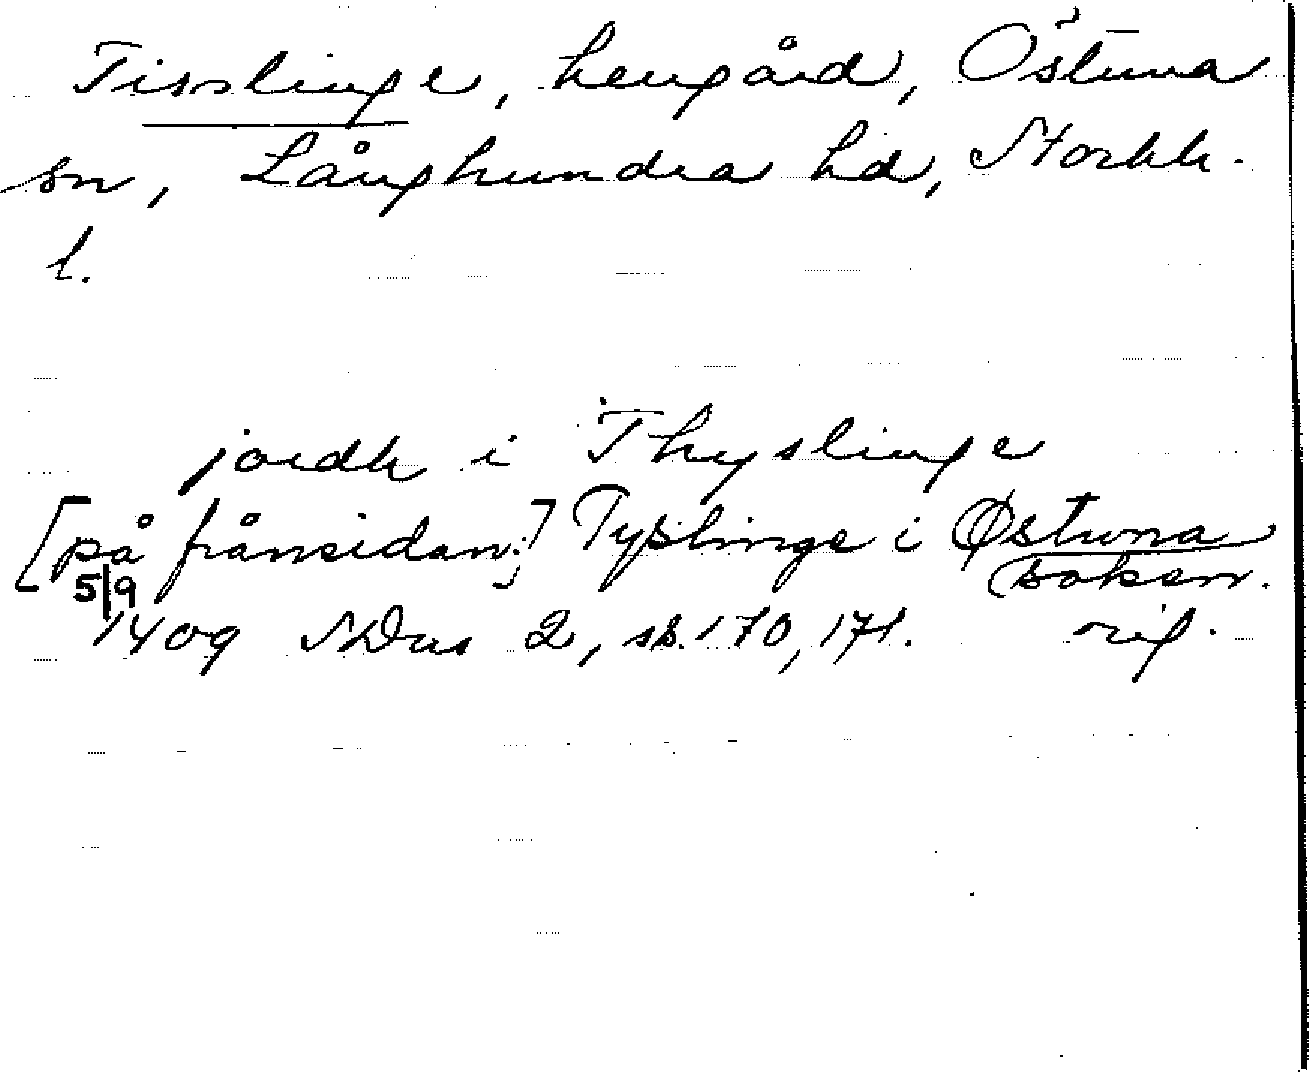 Tisslinge, herrgård, Östuna
sn, Långhundra hd, Stockh.
l.
jordh i Thyslinge
[på frånsidan:] Tyslinge i Østwna
soken.
5/9
1409 SDns 2, sb. 170, 171. orig.